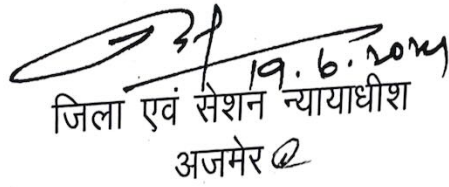 19.6.2024
जिला एवं सेशन न्यायाधीश
अजमेर